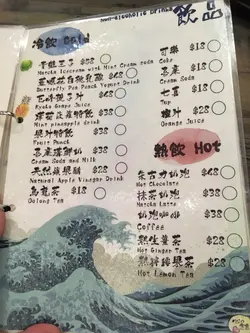 Non-Alcoholic Drinks 飲品
冷飲 Cold
$38
Matcha Icecream with Mint Cream soda
$38
Butterfly Pea Punch Yogurt Drink
$38
Kyoho Grape Juice
$38
Mint pineapple drink
果汁特飲 $38
Fruit Punch
$38
Cream Soda and Milk
天然蘋果醋 $28
Natural Apple Vinegar Drink
烏龍茶 $18
Oolong Tea
可樂 $18
Coke
忌廉 $18
Cream Soda
七喜 $18
7up
橙汁 $28
Orange Juice
熱飲 Hot
朱古力奶泡 $38
Hot Chocolate
抹茶奶泡 $38
Matcha Latte
奶泡咖啡 $38
Coffee
熱生薑茶 $28
Hot Ginger Tea
$28
Hot Lemon Tea